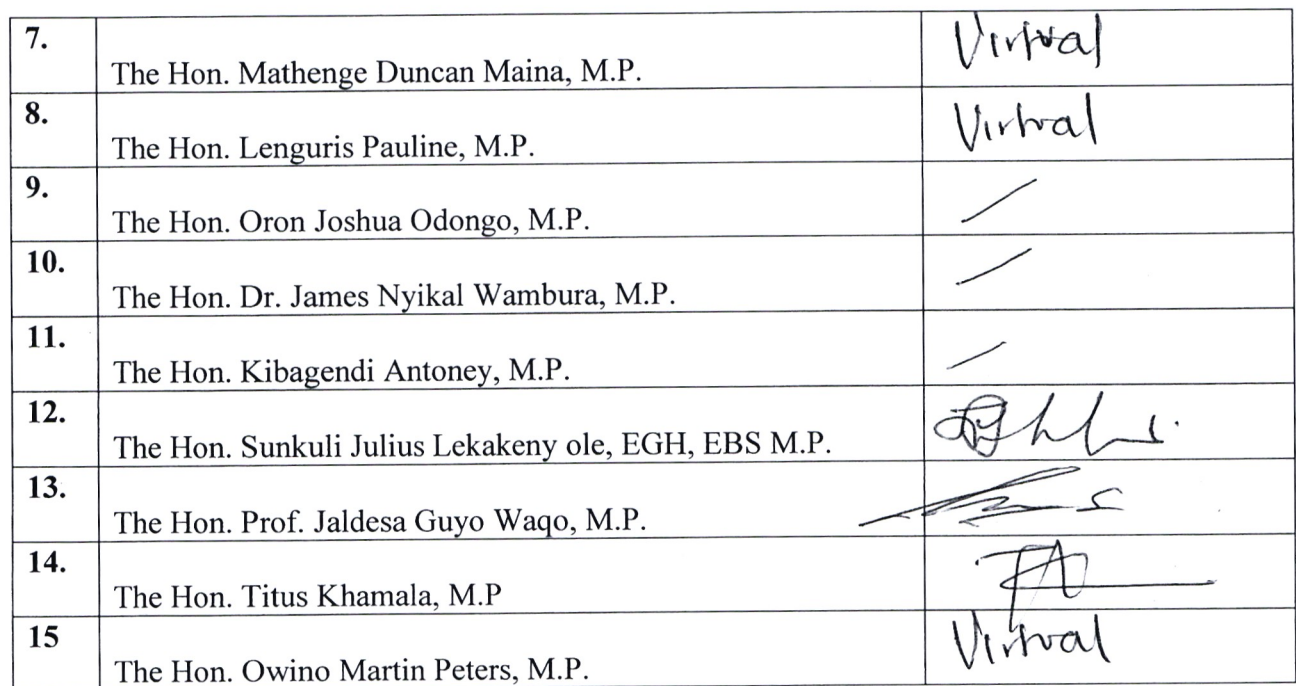 7. The Hon. Mathenge Duncan Maina, M.P. Virtual
8. The Hon. Lenguris Pauline, M.P. Virtual
9. The Hon. Oron Joshua Odongo, M.P.
10. The Hon. Dr. James Nyikal Wambura, M.P.
11. The Hon. Kibagendi Antoney, M.P.
12. The Hon. Sunkuli Julius Lekakeny ole, EGH, EBS M.P.
13. The Hon. Prof. Jaldesa Guyo Waqo, M.P.
14. The Hon. Titus Khamala, M.P
15 The Hon. Owino Martin Peters, M.P. Virtual